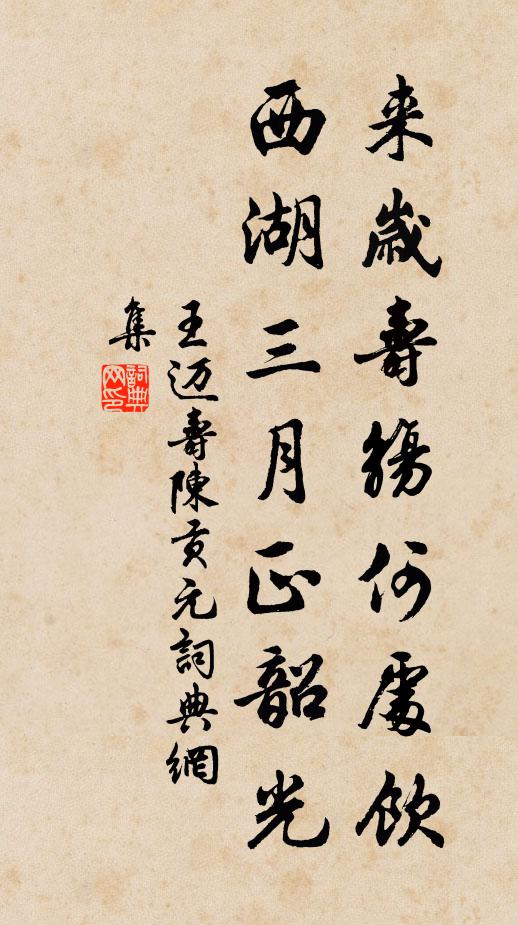 来歲壽觴何處飲
西湖三月正韶光
王迈壽陳貢元詞典網
集
詞典網印